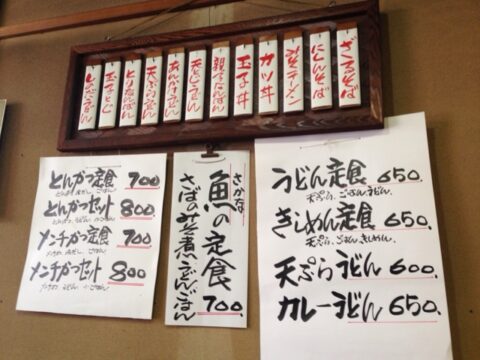 ざるそば
にしんそば
みそラーメン
カツ丼
玉子丼
親子なんばん
天とじうどん
あんかけうどん
天ぷらうどん
とりなんばん
玉子とじ
しのだうどん
とんかつ定食 700
とんかつセット 800
メンチかつ定食 700
メンチかつセット 800
さかな
魚の定食
さばのみそ煮うどんごはん
700.
うどん定食 650.
天ぷら、ごはん、うどん、
きしめん定食 650.
天ぷら、ごはん、きしめん、
天ぷらうどん 600.
カレーうどん 650.